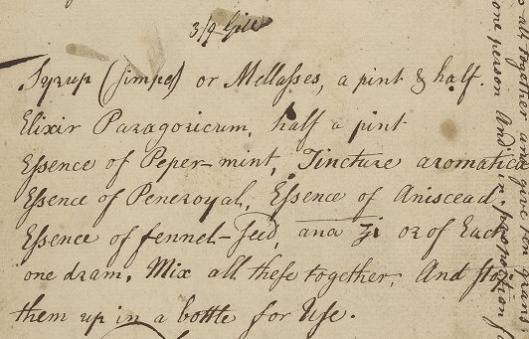 3/9 Gill
Syrup (simpe) or Mellasses, a pint & half.
Elixir Paragoricum, half a pint
Essence of Peper-mint, Tincture aromatica
Essence of Peneroyal, Essence of Aniscead,
Essence of fennel-Seed, ana ʒi or of Each
one dram. Mix all these together. And Stop
them up in a bottle for Use.
all together and
one person And in proportion